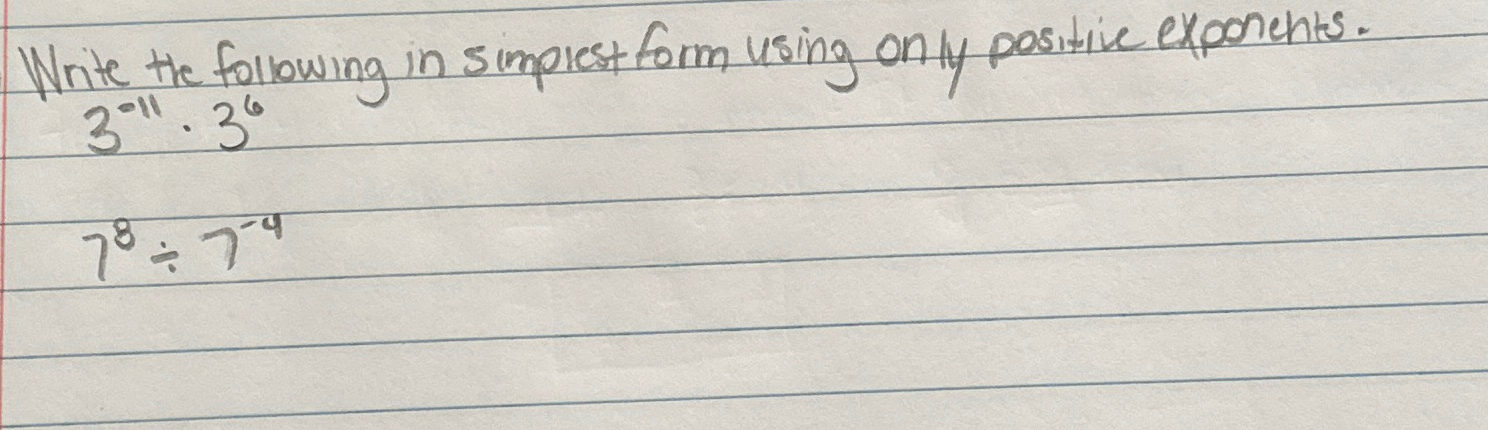 Write the following in simplest form using only positive exponents.
3⁻¹¹ · 3⁶
7⁸ ÷ 7⁻⁴